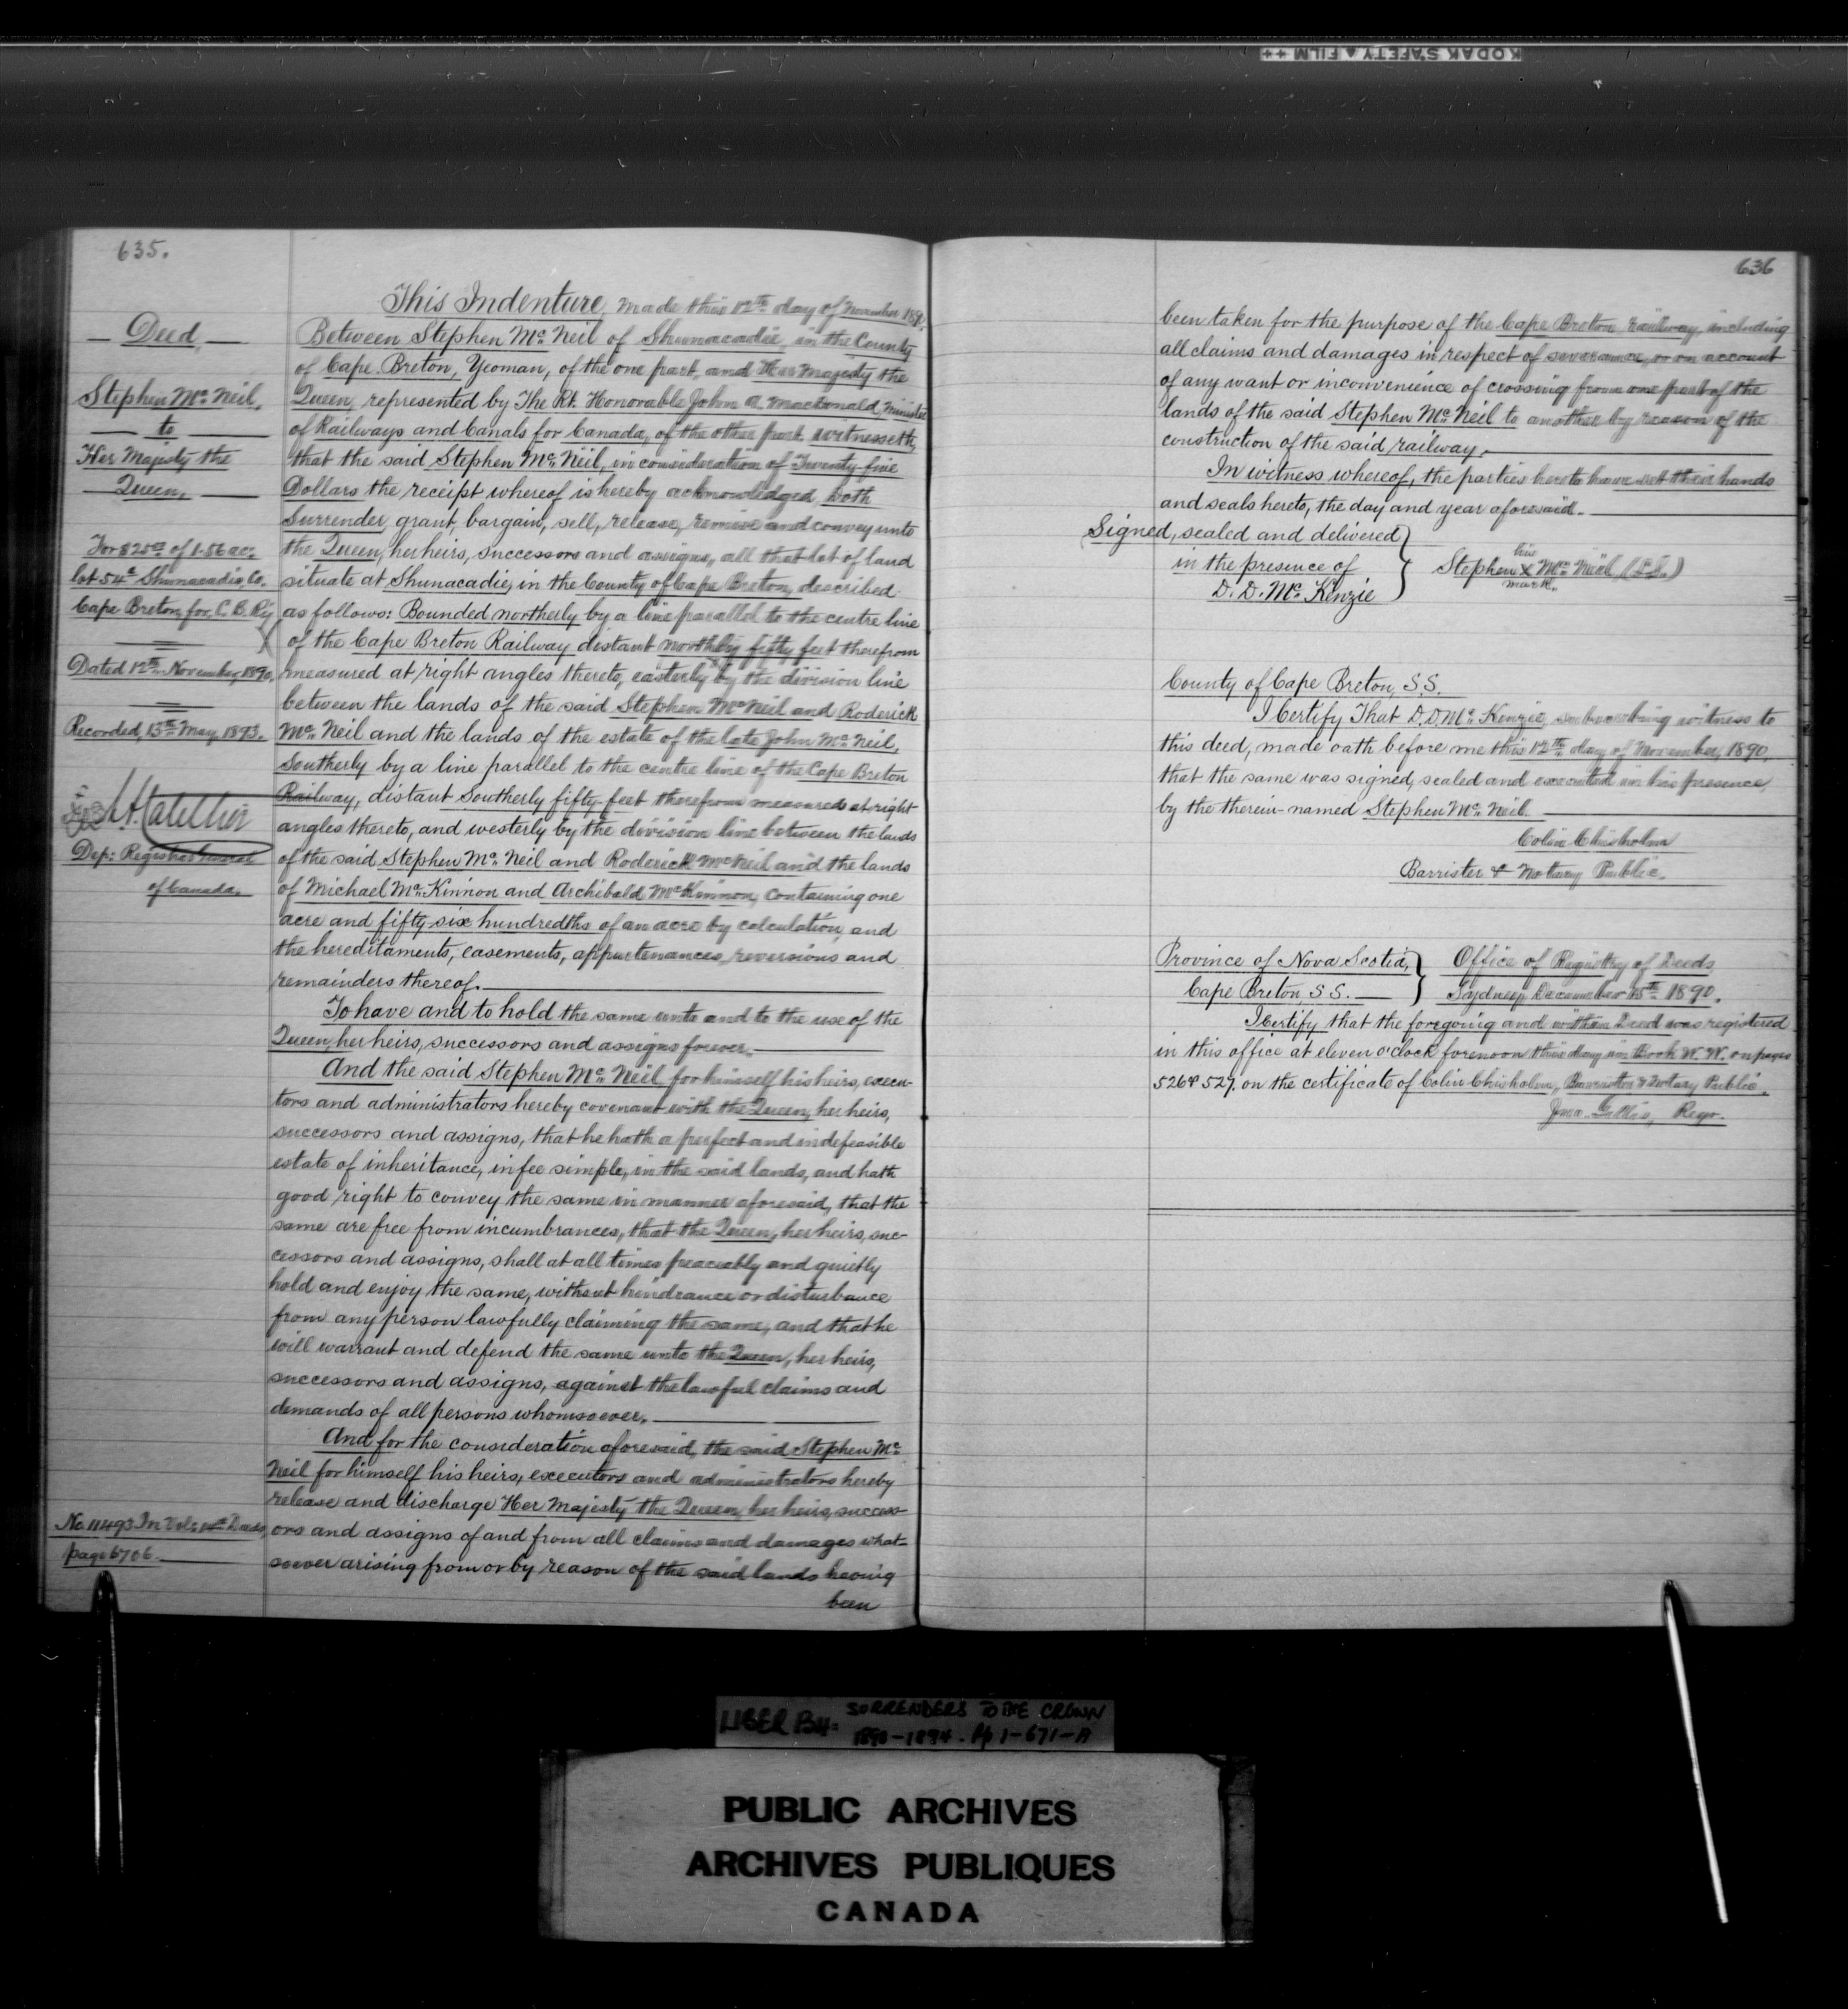 KODAK SAFETY ▲ FILM ++
635.
Deed
Stephen Mc. Neil,
to
Her Majesty the
Queen,
For $25.00 of 1.56 ac.
lot 54a Shunacadie, Co.
Cape Breton, for C. B. Ry
Dated 12th November, 1890.
Recorded, 13th May 1893.
Dep: Registrar General
of Canada.
No. 11493 In Vol: Deeds
page 6706.
This Indenture, made this 12th day of November 1890,
Between Stephen Mc. Neil of Shunacadie, in the County
of Cape Breton, Yeoman, of the one part, and Her Majesty the
Queen, represented by The Rt. Honorable John A. Macdonald, Minister
of Railways and Canals for Canada, of the other part witnesseth,
that the said Stephen Mc. Neil, in consideration of Twenty-five
Dollars the receipt whereof is hereby acknowledged Doth
Surrender, grant, bargain, sell, release, remise and convey unto
the Queen, her heirs, successors and assigns, all that lot of land
situate at Shunacadie, in the County of Cape Breton, described
as follows: Bounded northerly by a line parallel to the centre line
of the Cape Breton Railway distant northerly fifty feet therefrom
measured at right angles thereto, easterly by the division line
between the lands of the said Stephen Mc. Neil and Roderick
Mc. Neil and the lands of the estate of the late John Mc. Neil,
Southerly by a line parallel to the centre line of the Cape Breton
Railway, distant Southerly fifty-feet therefrom measured at right
angles thereto, and westerly by the division line between the lands
of the said Stephen Mc. Neil and Roderick Mc. Neil and the lands
of Michael Mc. Kinnon and Archibald Mc. Kinnon, containing one
acre and fifty-six hundredths of an acre by calculation, and
the hereditaments, easements, appurtenances, reversions and
remainders thereof.
To have and to hold the same unto and to the use of the
Queen, her heirs, successors and assigns forever.
And the said Stephen Mc. Neil for himself his heirs, execu-
tors and administrators hereby covenant with the Queen, her heirs,
successors and assigns, that he hath a perfect and indefeasible
estate of inheritance, in fee simple, in the said lands, and hath
good right to convey the same in manner aforesaid, that the
same are free from incumbrances, that the Queen, her heirs, suc-
cessors and assigns, shall at all times peaceably and quietly
hold and enjoy the same, without hindrance or disturbance
from any person lawfully claiming the same, and that he
will warrant and defend the same unto the Queen, her heirs,
successors and assigns, against the lawful claims and
demands of all persons whomsoever.
And for the consideration aforesaid, the said Stephen Mc.
Neil for himself his heirs, executors and administrators hereby
release and discharge Her Majesty the Queen, her heirs, success-
ors and assigns of and from all claims and damages what-
soever arising from or by reason of the said lands having
been
636
been taken for the purpose of the Cape Breton railway, including
all claims and damages in respect of severance, or on account
of any want or inconvenience of crossing from one part of the
lands of the said Stephen Mc. Neil to another by reason of the
construction of the said railway.
In witness whereof, the parties hereto have set their hands
and seals hereto, the day and year aforesaid.
Signed, sealed and delivered
in the presence of
D. D. Mc. Kenzie
his
Stephen X Mc. Neil (L.S.)
mark.
County of Cape Breton, S.S.
I Certify That D. D. Mc. Kenzie, subscribing witness to
this deed, made oath before me this 12th day of November, 1890,
that the same was signed, sealed and executed in his presence,
by the therein-named Stephen Mc. Neil.
Colin Chisholm
Barrister & Notary Public.
Province of Nova Scotia,
Cape Breton S S.
Office of Registry of Deeds
Sydney, December 15th 1890.
I Certify that the foregoing and within Deed was registered
in this office at eleven o'clock forenoon this day in Book W. W. on pages
526 & 527. on the certificate of Colin Chisholm, Barrister & Notary Public.
Jno. Gillis, Regr.
LIBER B4: SURRENDERS TO THE CROWN
1890-1894. Pp 1-671-A
PUBLIC ARCHIVES
ARCHIVES PUBLIQUES
CANADA